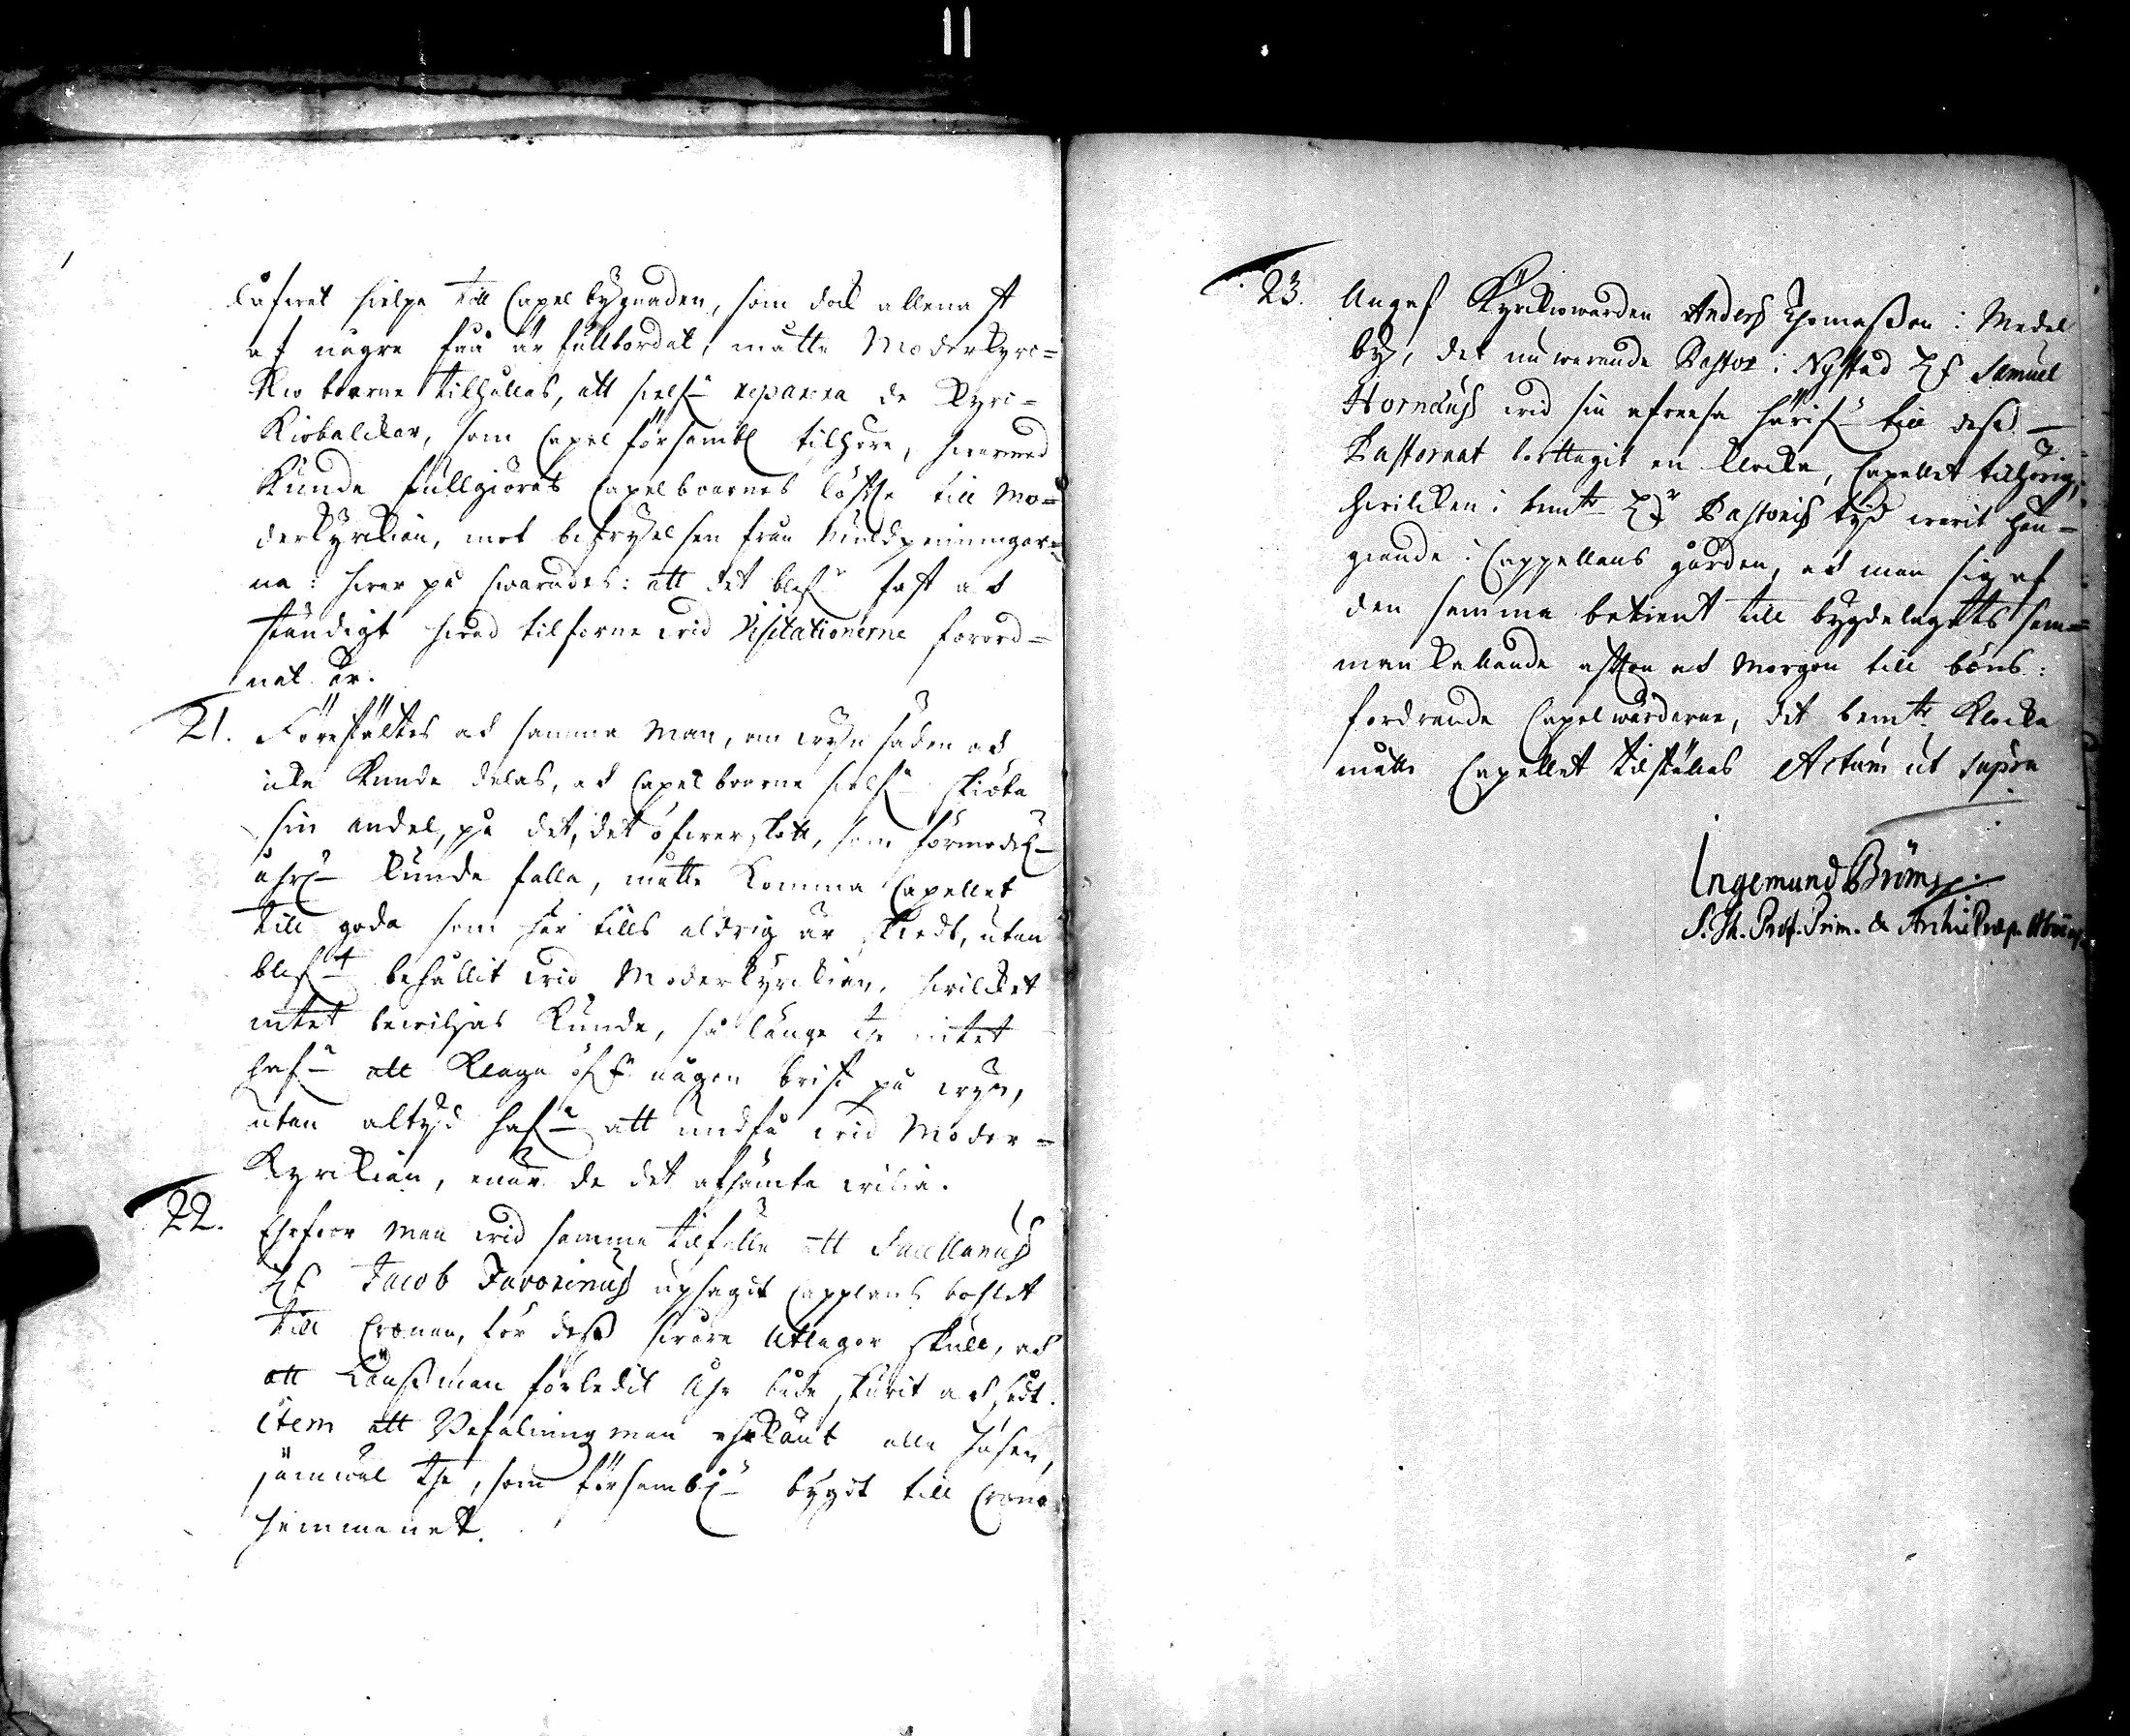 låfwet hielpa till Capelbygnaden, som dock allenast
af någre fåå är fullbordat, måtte Moderkyrc=
kio boerne tilhållas, att sielfwa reparera de Kyrc=
kiobalckar, som Capel försambl tilhöra, hwarmed
kunde fullgiöras Capelboernes löffte till Mo=
derkyrckian, mot befryelsen från
na: hwar på swarades: att det blefwe fast och
ständigt hwad tilförne wid Visitationerne förord=
nat är.
21. Föreståltes och samma Man, om wijn säden och
icke kunde delas, och Capelboerne sielfwa skiöta
sin andel, på det, det öfwerskått, som förmodel
åhrl kunde falla, måtte komma Capellet
till goda som här tills aldrig är skiedt, utan
blefwit behållit wid Moderkyrckian, hwilcket
intet bewiljas kunde, så länge the intet
hafwa att klaga öfwer någon brist på wijn,
utan altijd hafwa att undfå wid Moder=
Kyrckian, enär de det afhämta wilia.
22. Ehrfoor man wid samma tilfälle att Sacellanus
Hr Jacob Favorinus upsagit Capplans bohlet
till Cronan, för dess swåre Utlagor skull, och
att Länssman förledit Åhr både skurit och sådt.
item att Befalningsman erkänt alla husen,
jämwäl the, som församblin bygdt till Crono
hemmanet.
23. Angaf Kyrckiowärden Anders Thomasson i Medel
by, det nuwarande Pastor i Nystad Hr Samuel
Hornæus wid sin afreesa härifrån till dess
Pastorat borttagit en klocka, Capellet tilhörig,
hwilcken i bemte Hr Pastoris tijd warit hän=
giande i Cappellans gården, och man sig af
den samma betient till bygdelagetts sam=
man kallande afton och Morgon till böns:
fordrande Capelwärderne, det bemte Klocka
måtte Capellet tilställas Actum ut supra
Ingemund Bröms.
S. Th. Prof. Prim. & ArchiPræp. Aboens.